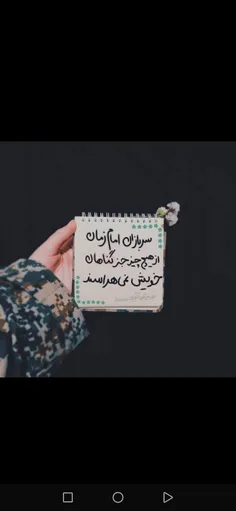 سربازان امام زمان
از هیچ چیز جز گناهان
خویش نمی هراسند